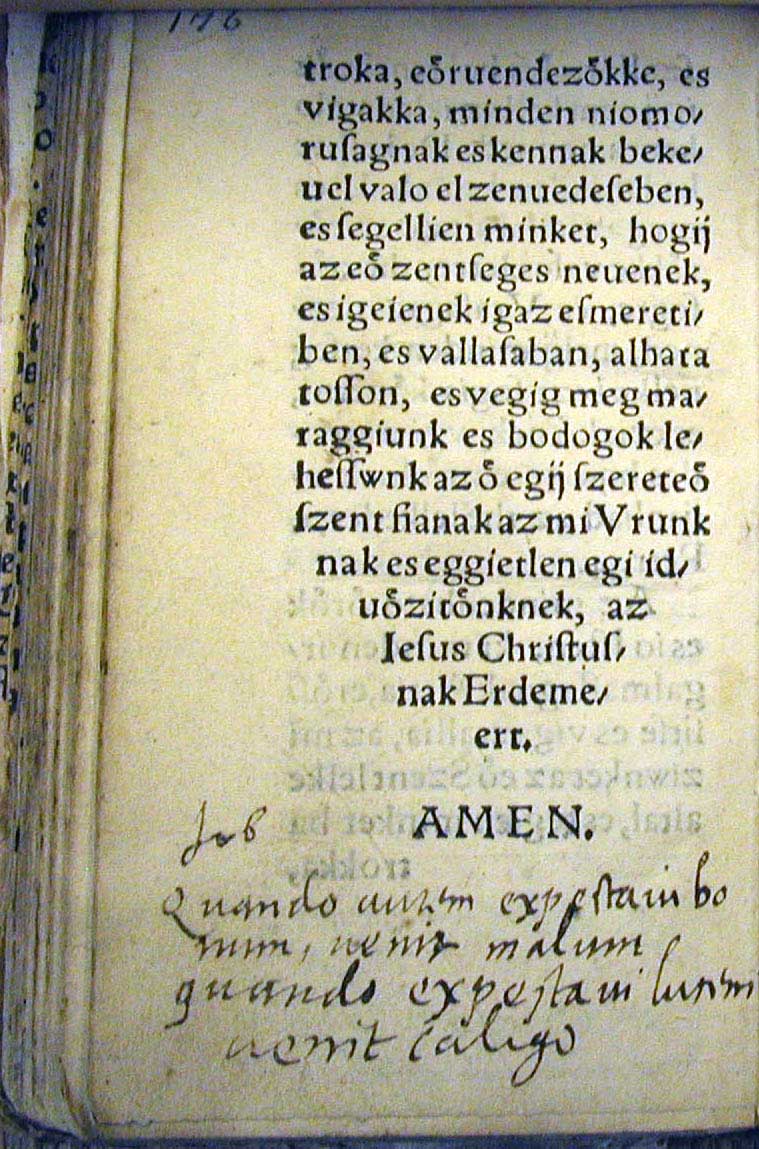 176
troka, eo̊ruendezo̊kke, es
vigakka, minden niomo/
ruſagnak es kennak beke/
uel valo el zenuedeſeben,
es ſegellien minket, hogij
az eo̊ zentſeges neuenek,
es igeienek igaz eſmereti/
ben, es vallaſaban, alhata
toſſon, es vegig meg ma/
raggiunk es bodogok le/
heſſwnk az o̊ egij ſzereteo̊
ſzent fianak az mi Vrunk
nak es eggietlen egi id/
uo̊zito̊nknek, az
Ieſus Chriſtuſ/
nak Erdeme/
ert.
AMEN.
Job
Quando autem expectaui bo
num, uenit malum
quando expectaui lucem
uenit caligo